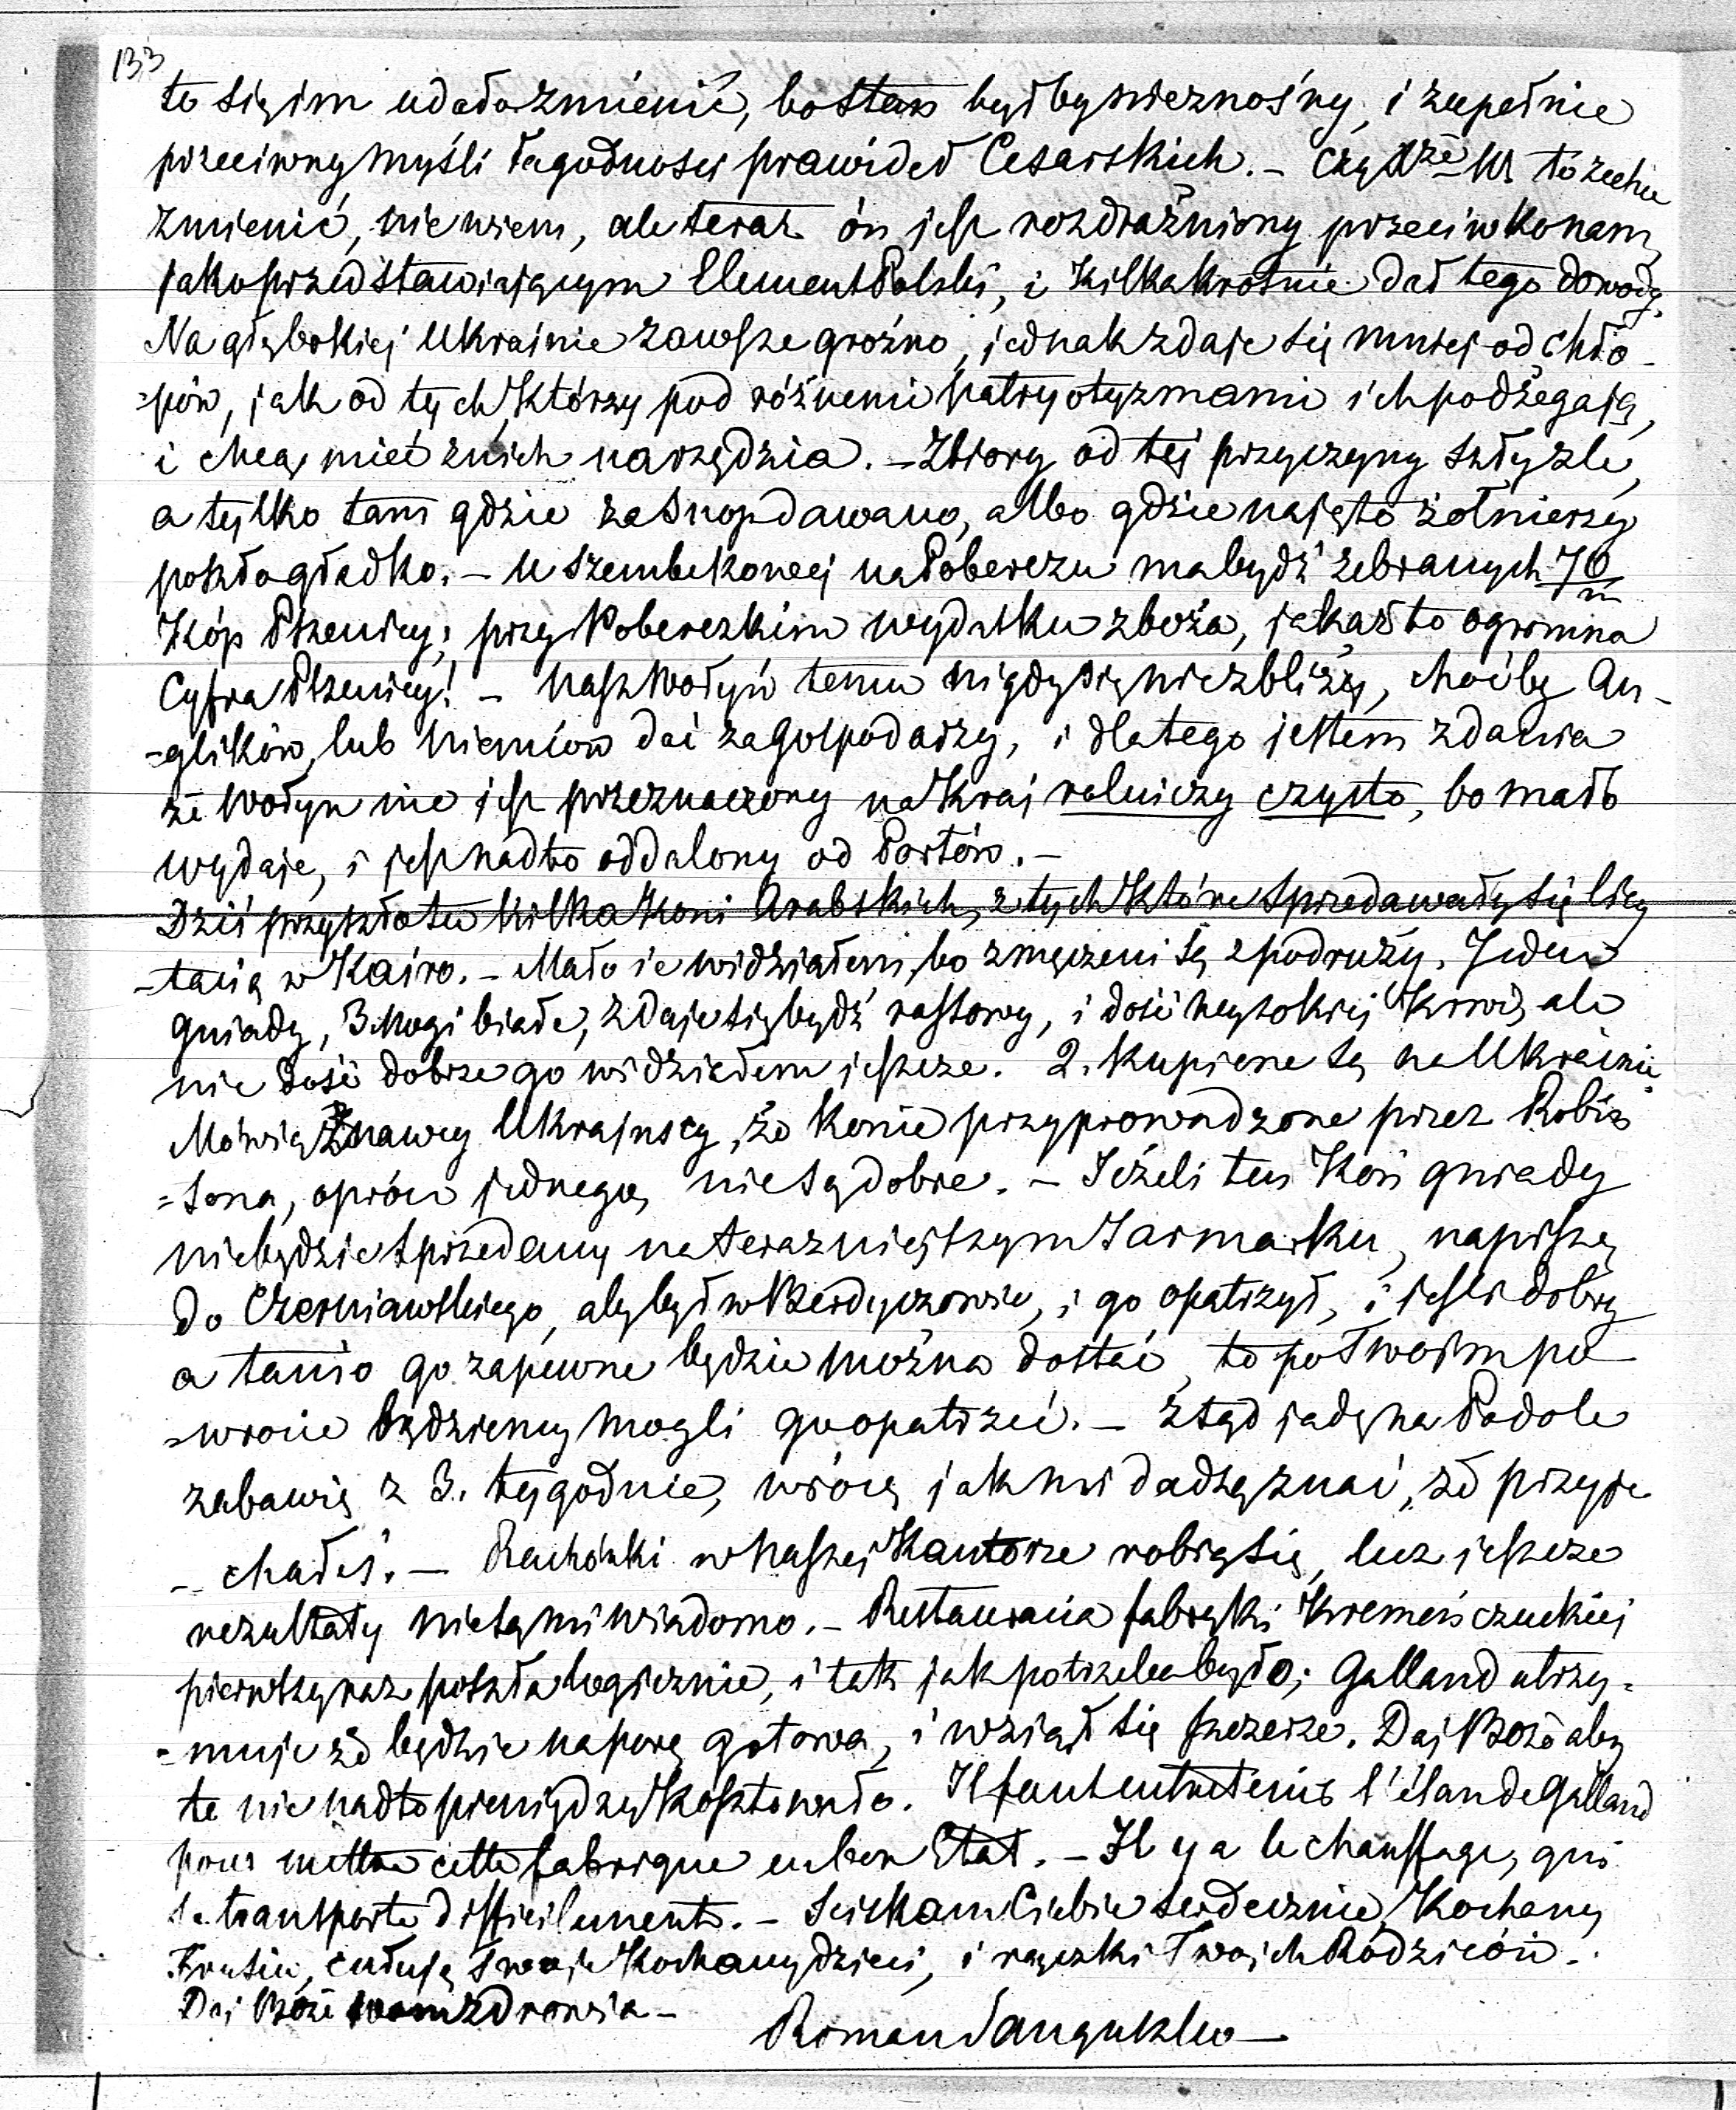 133
to się im udało zmienić, bo stan byłby nieznośny, i zupełnie
przeciwny myśli łagodności prawideł Cesarskich. – Czy że to zechce
zmienić, nie wiem, ale teraz ón jest rozdrażniony przeciwko nam
jako przedstawiającym Element Polski, i kilkakrotnie dał tego dowody.
Na głębokiej Ukrainie zawsze groźno, jednak zdaje się mniej od chło-
=pów, jak od tych, którzy pod różnemi patryotyzmami ich podżegają,
i chcą mieć z nich narzędzia. – Zbiory od tej przyczyny szły źle,
a tylko tam gdzie za snop dawano, albo gdzie najęto żołnierzy
poszło gładko. – U Szembekowej na Poberezu ma bydź zebranych 70/m
Kóp Pszenicy; przy Poberezkim wydatku zboża, jakaż to ogromna
Cyfra Pszenicy! – Nasz Wołyń temu nigdy się nie zbliży, choćby An-
=glików, lub Niemców dać za gospodarzy, i dlatego jestem zdania
że Wołyn nie jest przeznaczony na Kraj rolniczy czysto, bo mało
wydaje, i jest nadto oddalony od Portów. –
Dziś przyszło tu kilka Koni Arabskich, z tych które sprzedawały się licy
-tacią w Kairo. – Mało ie widziałem, bo zmęczeni są z podruży. Jeden
gniady, 3 nogi białe, zdaje się bydź rosłowy, i dość wysokiej Krwi, ale
nie dość dobrze go widziałem jeszcze. 2. kupione są na Ukrainie.
Mówią Znawcy Ukrajnscy, że konie przyprowadzone przez Robin
=sona, oprócz jednego, nie są dobre. – Jeżeli ten Koń gniady
nie będzie sprzedany na terazniejszym Jarmarku, napiszę
do Czerniawskiego, aby był w Berdyczowie, i go opatrzył, i jeśli dobry
a tanio go zapewne będzie można dostać, to po Twoim po
=wrocie będziemy mogli go opatrzeć. – Ztąd jadę na Podole
zabawię z 3. tygodnie, wrócę jak mi dadzą znać, że przyje
-chałeś. – Rachónki w naszej Kantorze robią się, lecz jeszcze
rezultaty nie są mi wiadomo. – Restauracia fabryki Kremeńczuckiej
pierwszy raz poszła logicznie, i tak jak potrzeba było; Galland utrzy=
=muje że będzie na porę gotowa, i wziął się szczerze. Daj Boże aby
to nie nadto pieniędzy kosztowało. Il faut entretenir l'élan de Galland
pour mettre cette fabrique en bon Etat. – Il y a le chauffage, qui
se transporte difficilement. – Sciskam Ciebie serdecznie, Kochany
całuję Twoje Kochany dzieci, i rączki Twoich Rodziców.
Daj Boże Wam zdrowia –
Roman Sanguszko –